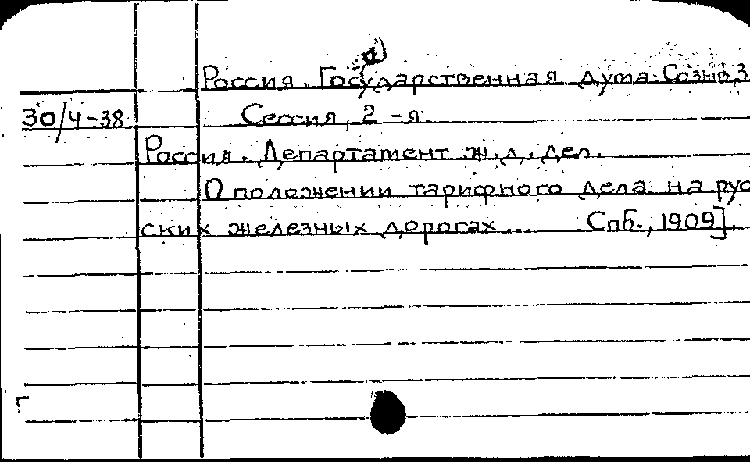 а)
Россия. Государственная дума. Созыв 3
30/4-38 Сессия, 2-я.
Россия. Департамент ж.д. дел.
О положении тарифного дела на рус
ских железных дорогах... Спб., 1909]